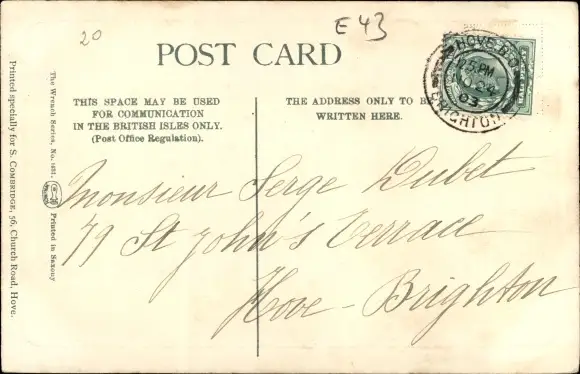 20
E 43
POST CARD
THIS SPACE MAY BE USED
FOR COMMUNICATION
IN THE BRITISH ISLES ONLY.
(Post Office Regulation).
THE ADDRESS ONLY TO BE
WRITTEN HERE.
HOVE B.O.
PM
03
BRIGHTON
Monsieur Serge Dubet
79 St John's Terrace
Hove - Brighton
The Wrench Series, No.
Printed in Saxony
Printed specially for S. COMBRIDGE, 56, Church Road, Hove.